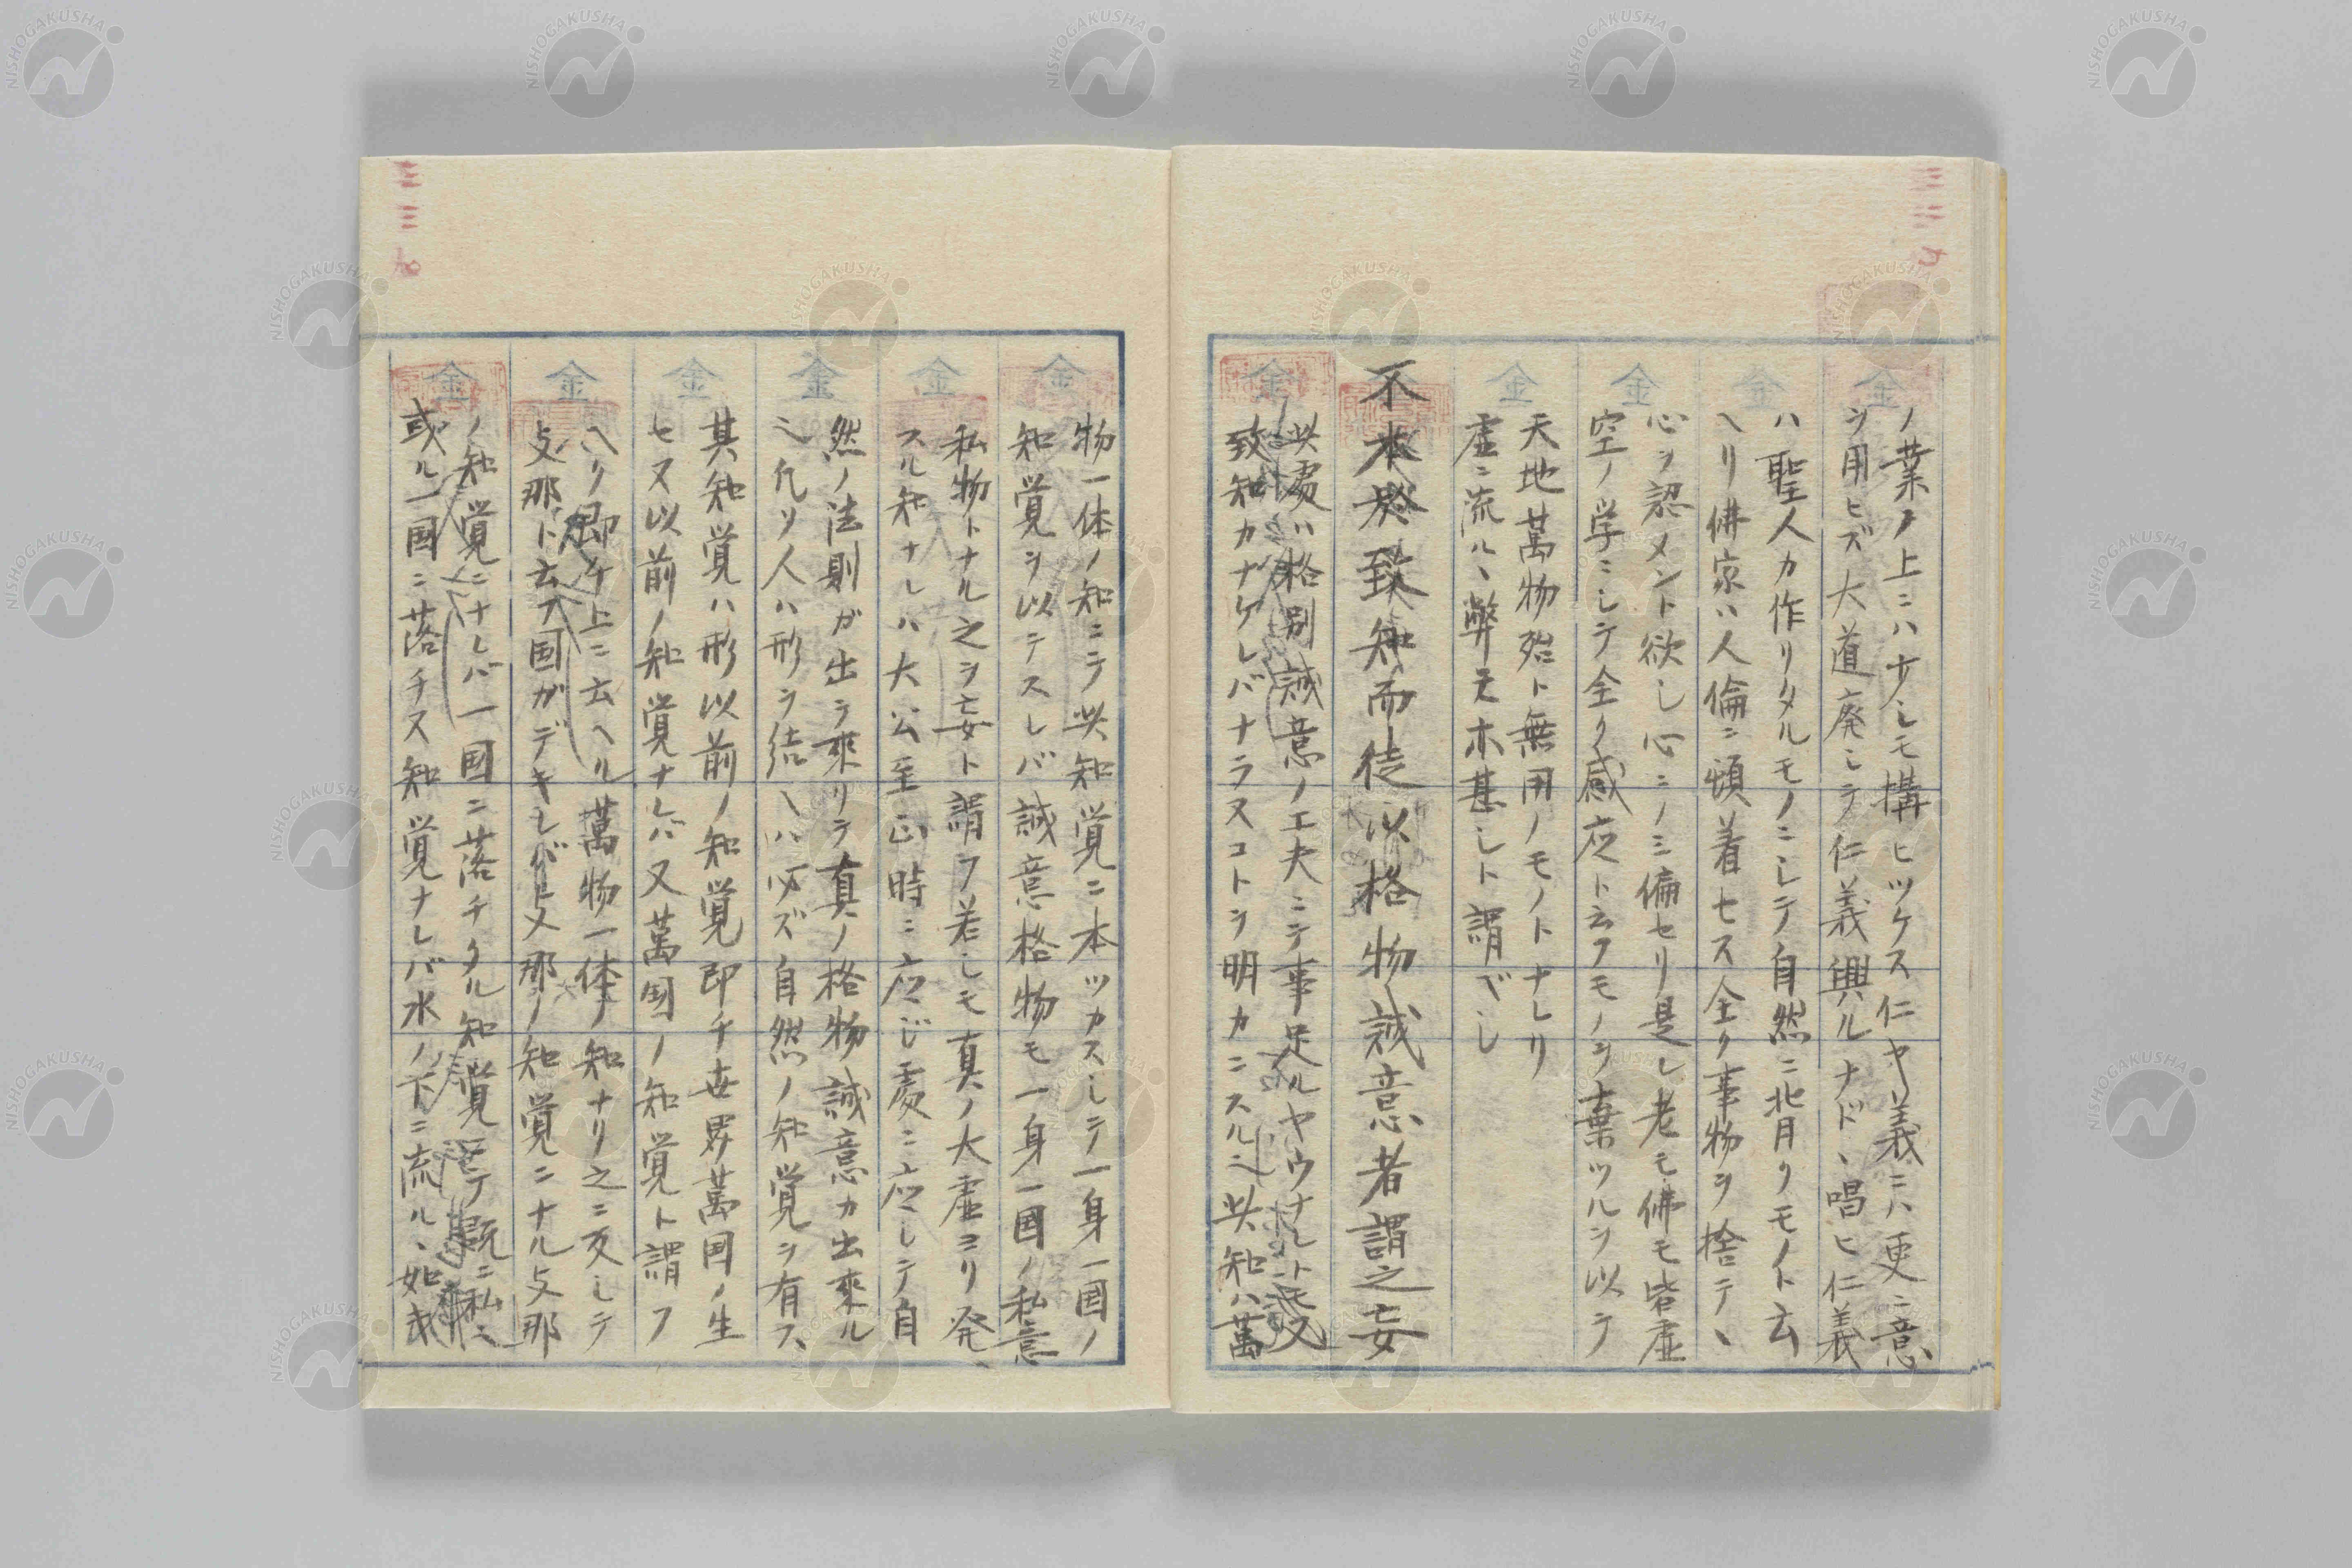 ノ業ノ上ニハ少シモ構ヒツケス仁ヤ義ニハ更ニ意
ヲ用ヒズ大道廃シテ仁義興ルナド、唱ヒ仁義
ハ聖人カ作リタルモノニシテ自然ニ背クモノト云
ヘリ佛家ハ人倫ニ頓着セス全ク事物ヲ捨テヽ
心ヲ認メント欲シ心ニノミ偏セリ是レ老モ佛モ皆虚
空ノ学ニシテ全ク感応ト云フモノヲ棄ツルヲ以テ
天地萬物殆ト無用ノモノトナレリ
虚ニ流ルヽ弊モ亦甚シト謂ベシ
不本於致知而徒以格物誠意者謂之妄
此處ハ格別誠意ノ工夫ニテ事足ルヤウナレト
致知カナケレバナラヌコトヲ明カニスル
此知ハ萬
物一体ノ知ニテ此知覚ニ本ツカスシテ一身一国ノ
知覚ヲ以テスレバ誠意格物モ一身一国ノ私意
私物トナル之ヲ妄ト謂フ若シモ真ノ大虚ヨリ発
スル知ナレハ大公至正時ニ応じ處ニ応シテ自
然ノ法則ガ出テ来リテ真ノ格物誠意カ出来ル
凡ソ人ハ形ヲ結ヘハ必ズ自然ノ知覚ヲ有ス
其知覚ハ形以前ノ知覚即チ世界萬国ノ生
セヌ以前ノ知覚ナレバ又萬国ノ知覚ト謂フ
ヘリ即チ上ニ云ヘル萬物一体ノ知ナリ之ニ反シテ
支那ト云フ国ガデキレバ支那ノ知覚ニナル支那
ノ知覚ニナレバ一国ニ落チタル知覚ニテ既ニ私
或ル一国ニ落チヌ知覚ナレバ水ノ下ニ流ルヽ如ク
NISHOGAKUSHA